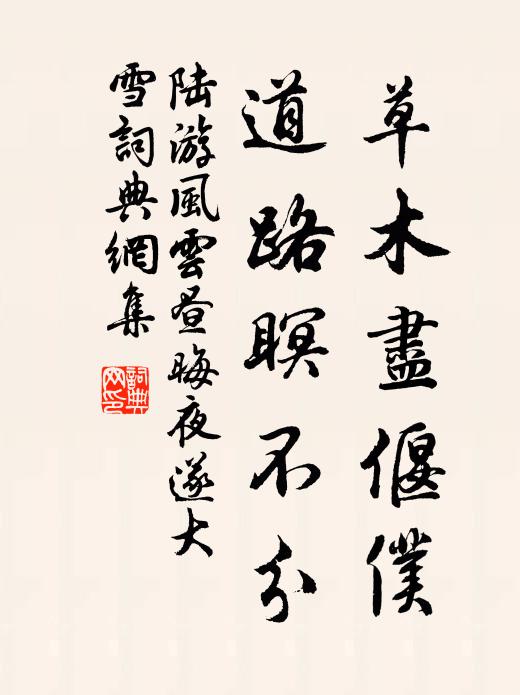 草木盡偃僕
道路瞑不分
陆游風雲昼晦夜遂大
雪詞典網集
詞典网印